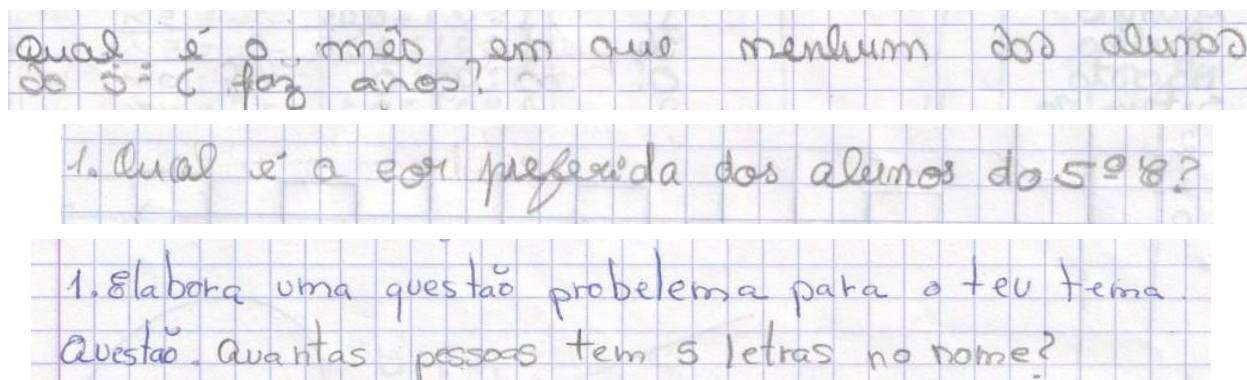 Qual é o mês em que nenhum dos alunos
do 5º C faz anos?
1. Qual é a cor preferida dos alunos do 5º B?
1. Elabora uma questão probelema para o teu tema.
Questão. Quantas pessoas tem 5 letras no nome?